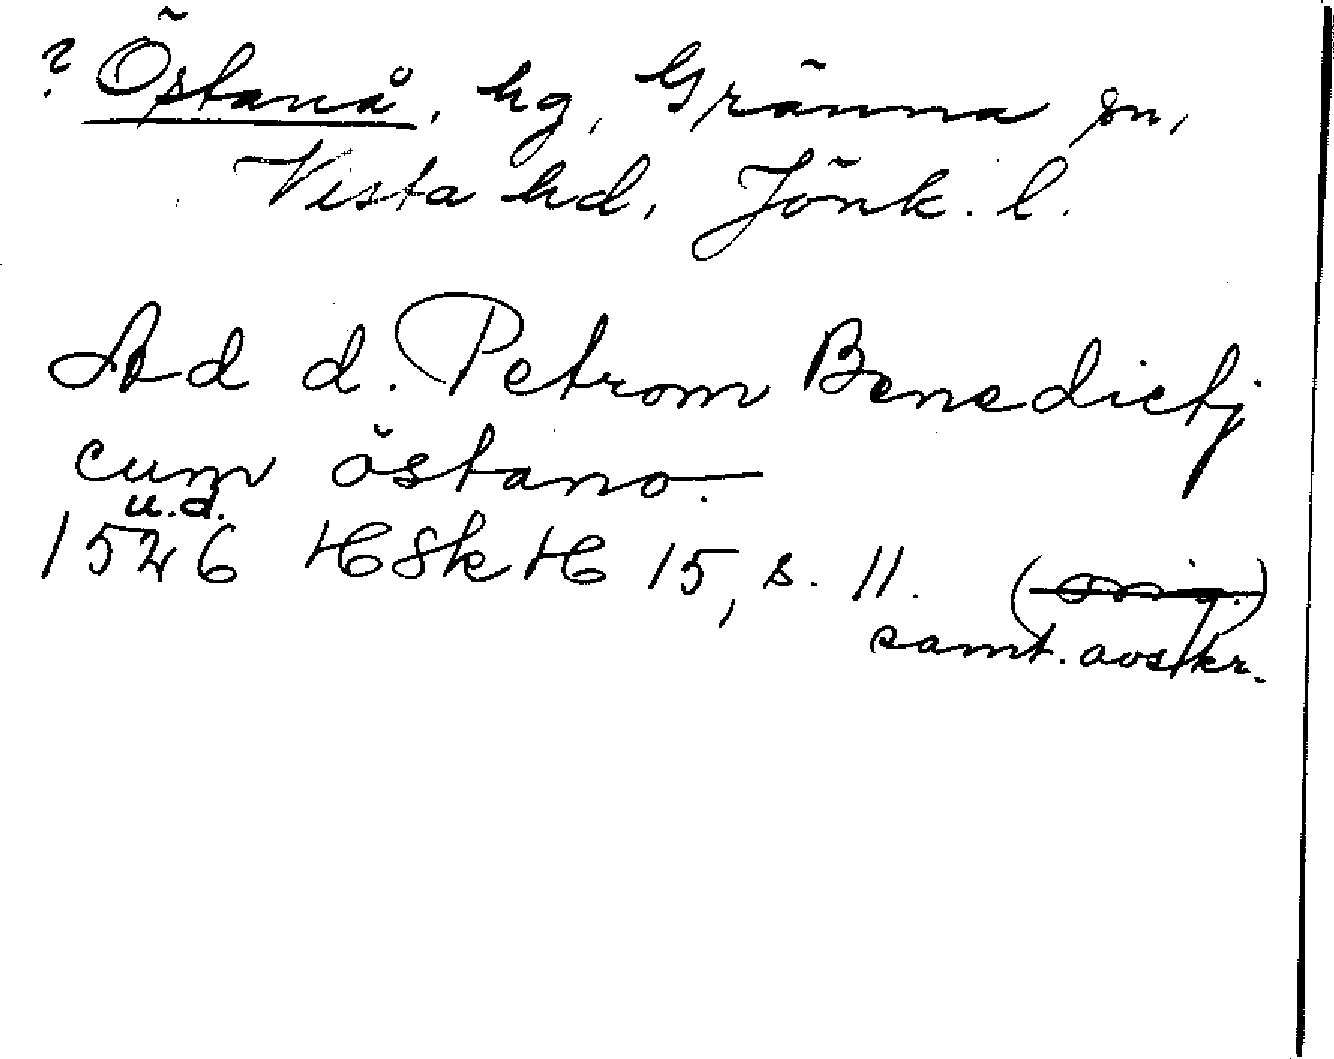 ? Östanå, hg, Gränna sn,
Vista hd, Jönk. l.
Ad d. Petrom Benedictj
cum östano.—
u.d.
1526 HSkH 15, s. 11. (orig.)
samt. avskr.